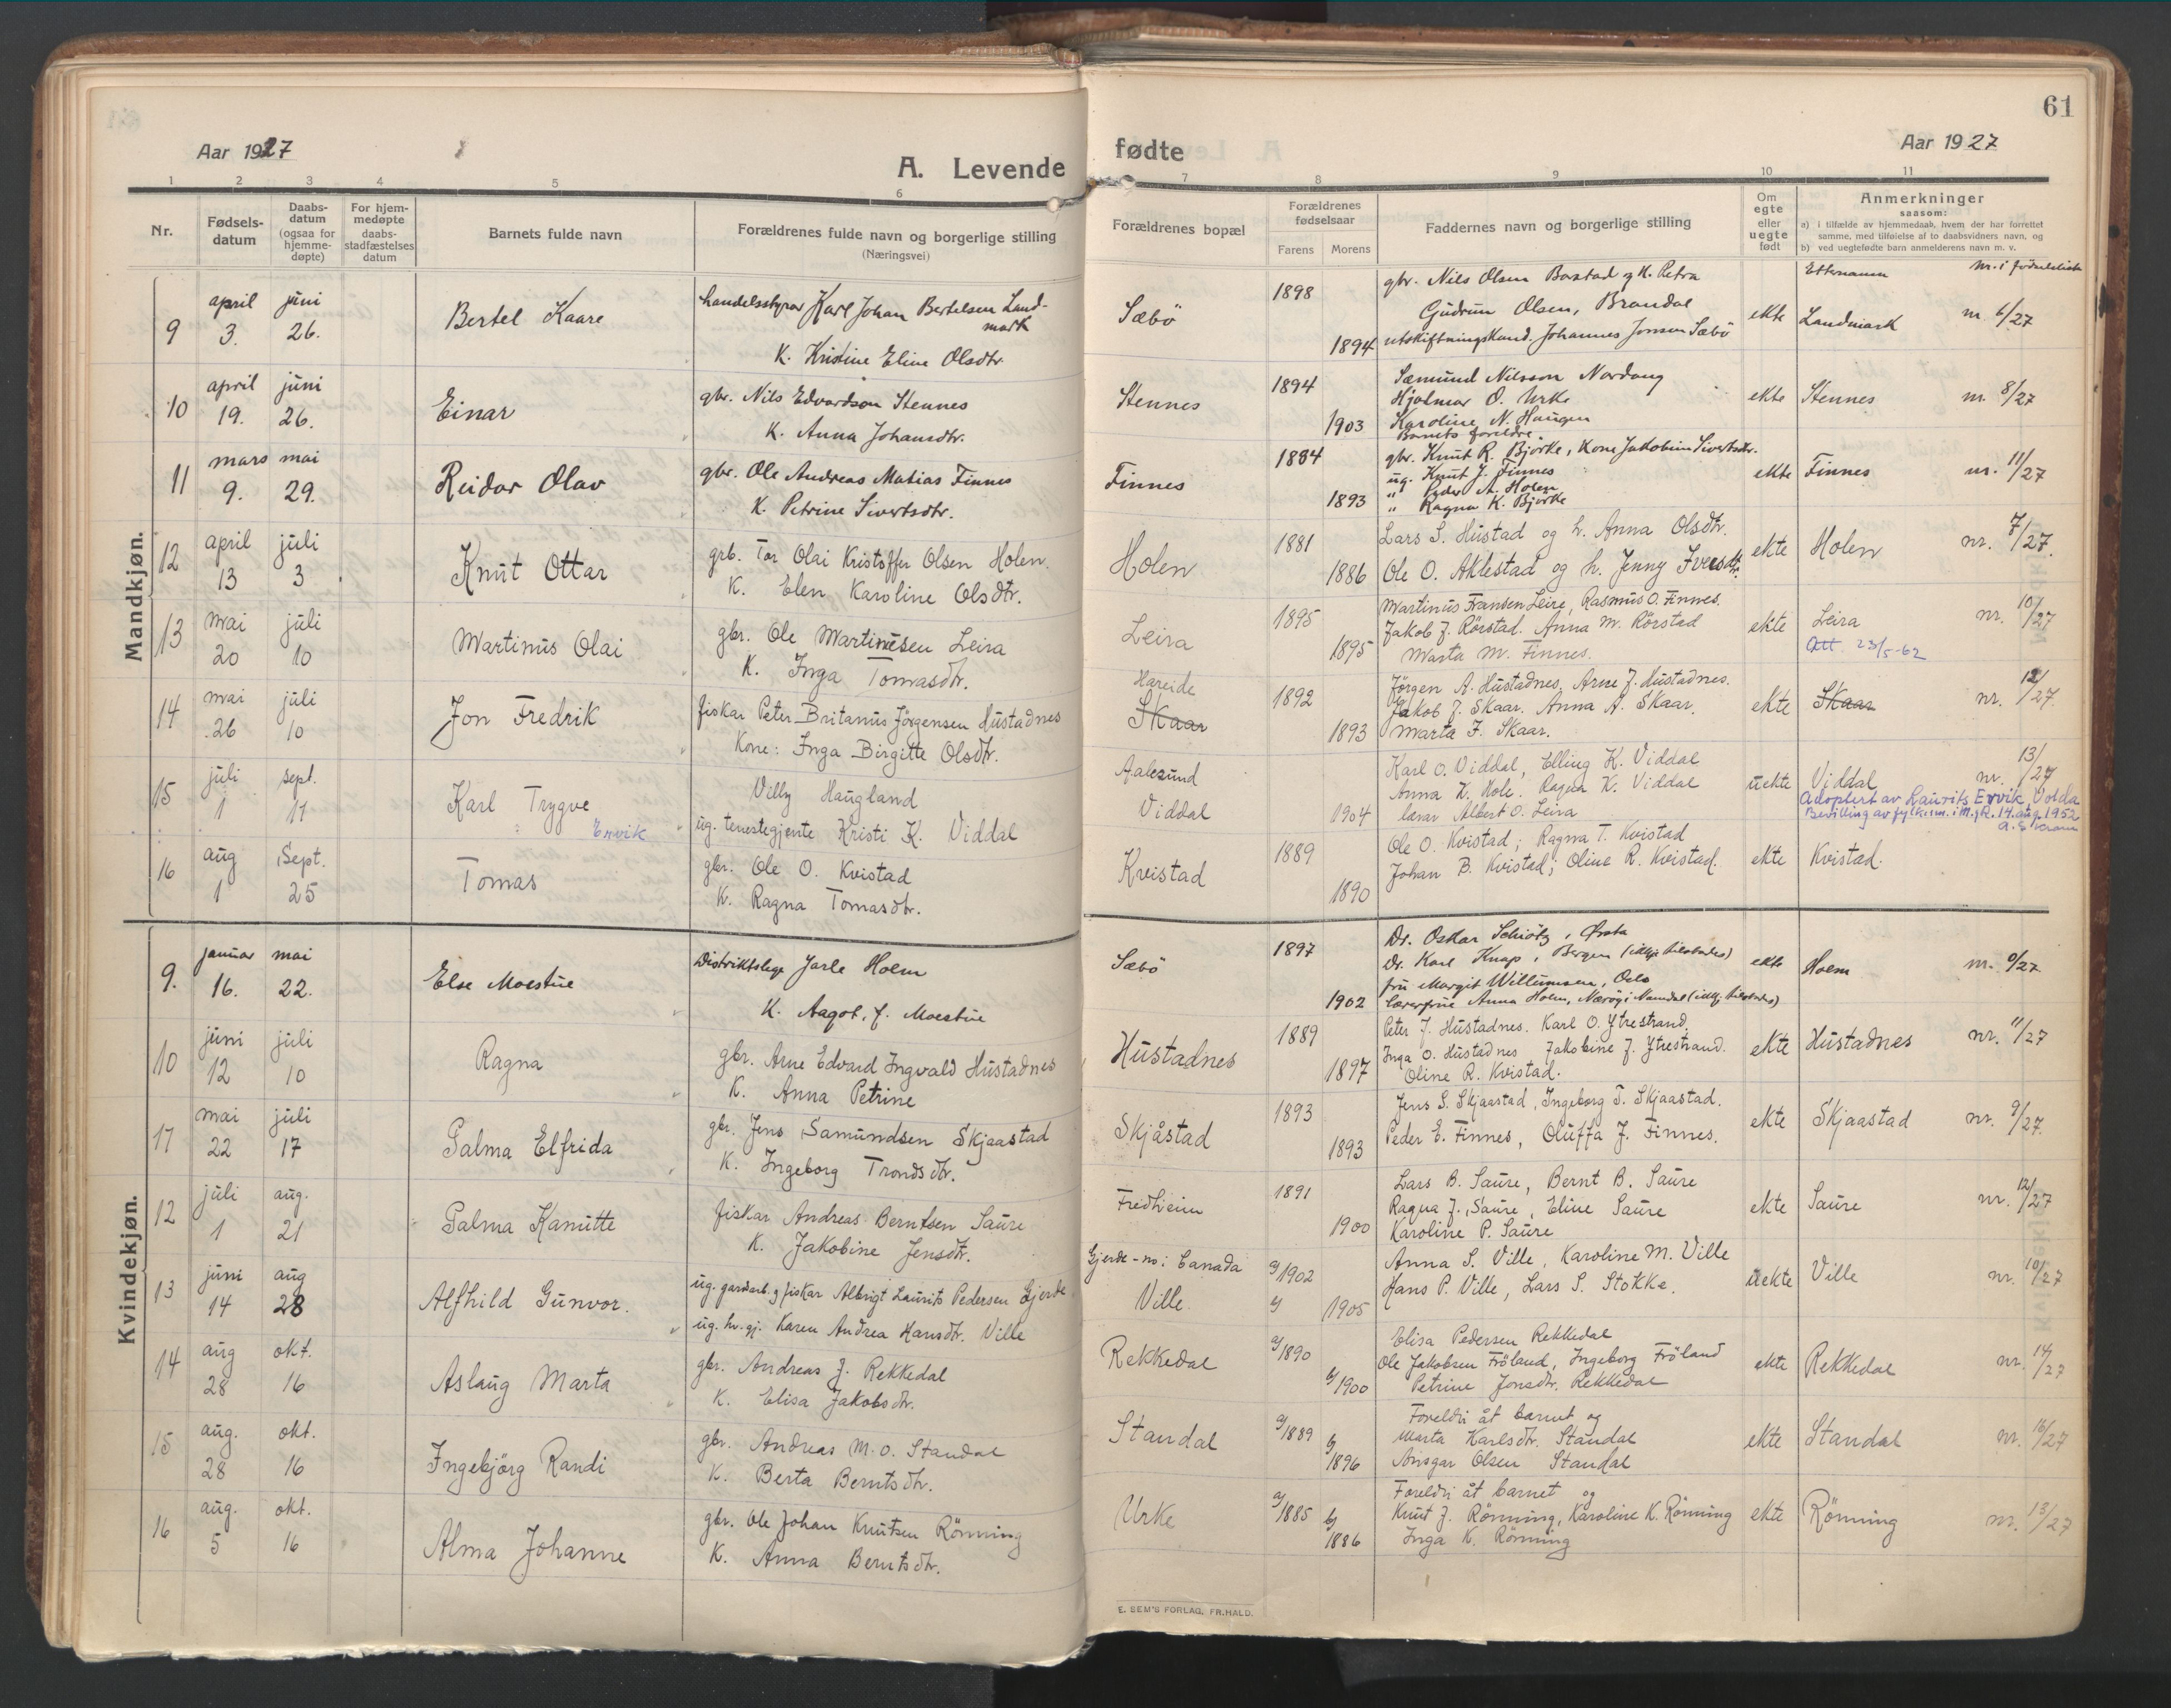 61
Aar 1927
A. Levende
1 2 3 4 5 6
Nr.
Fødsels-
datum
Daabs-
datum
(ogsaa for
hjemme-
døpte)
For hjem-
medøpte
daabs-
stadfæstelses
datum
Barnets fulde navn
Forældrenes fulde navn og borgerlige stilling
(Næringsvei)
fødte
Aar 1927
7 8 9 10 11
Forældrenes bopæl
Forældrenes
fødselsaar
Farens Morens
Faddernes navn og borgerlige stilling
Om
egte
eller
uegte
født
Anmerkninger
saasom:
a) i tilfælde av hjemmedaab, hvem der har forrettet
samme, med tilføielse af to daabsvidners navn, og
b) ved uegtefødte barn anmelderens navn m. v.
Etternamn nr. i fødselsliste
Mandkjøn.
9
april
3.
juni
26.
Bertel Kaare
handelsstyrar Karl Johan Bertelsen Land-
mark
K. Kristine Eline Olsdtr.
Sæbö
1898
1894
gbr. Nils Olsen Bastad og K. Petra
Gudrun Olsen, Brandal
utskiftningskand. Johannes Jonsen Sæbö
ekte
Landmark nr. 6/27
10
april
19.
juni
26.
Einar
gbr. Nils Edvardson Stennes
K. Anna Johansdtr.
Stennes
1894
1903
Sæmund Nilsson Nordang
Hjalmar O. Urke
Karoline N. Haugen
Barnets foreldre.
ekte
Stennes nr. 8/27
11
mars
9.
mai
29.
Reidar Olav
gbr. Ole Andreas Matias Finnes
K. Petrine Sivertsdtr.
Finnes
1884
1893
gbr. Knut R. Bjørke, kone Jakobine Sivertsdtr.
ug. Knut J. Finnes
" Peder A. Holen
" Ragna K. Bjørke
ekte
Finnes nr. 11/27
12
april
13
juli
3
Knut Ottar
grb. Tor Olai Kristoffer Olsen Holen.
K. Elen Karoline Olsdtr.
Holen
1881
1886
Lars S. Hustad og h. Anna Olsdtr.
Ole O. Aklestad og h. Jenny Iversdtr.
ekte
Holen nr. 7/27.
13
mai
20
juli
10
Martinus Olai
gbr. Ole Martinusen Leira
K. Inga Tomasdtr.
Leira
1895
1895
Martinus Fransen Leire, Rasmus O. Finnes.
Jakob J. Rörstad. Anna M. Rörstad
Marta M. Finnes.
ekte
Leira nr. 10/27
Att. 23/5-62
14
mai
26
juli
10
Jon Fredrik
fiskar Peter Britanus Jörgensen Hustadnes
Kone: Inga Birgitte Olsdtr.
Hareide
Skaar
1892
1893
Jörgen A. Hustadnes. Arne J. Hustadnes.
Jakob J. Skaar. Anna A. Skaar.
Marta J. Skaar.
ekte
Skaar nr. 12/27.
15
juli
1
sept.
11
Karl Trygve
Ervik
Villy Haugland
ug. tenestegjente Kristi K. Viddal
Aalesund
Viddal
1904
Karl O. Viddal, Elling K. Viddal
Anna K. Hole. Ragna K. Viddal
lærar Albert O. Leira
uekte
Viddal nr. 13/27
Adoptert av Laurits Ervik, Volda
Bevilling av fylkesm. i M. & R. 14. aug. 1952
16
aug
1
Sept.
25
Tomas
gbr. Ole O. Kvistad
K. Ragna Tomasdtr.
Kvistad
1889
1890
Ole O. Kvistad; Ragna T. Kvistad
Johan B. Kvistad; Oline R. Kvistad.
ekte
Kvistad.
Kvindekjøn.
9.
januar
16.
mai
22.
Else Moestue
Distriktslege Jarle Holm
K. Aagot, f. Moestue
Sæbö
1897
1902
Dr. Oskar Schiötz, Ørsta
Dr. Karl Knap, Bergen (ikkje tilstades)
fru Margit Willumsen, Oslo
lærerfrue Anna Holm, Nærøy i Namdal (ikkj. tilstades)
ekte
Holm nr. 0/27
10
juni
12
juli
10
Ragna
gbr. Arne Edvard Ingvald Hustadnes
K. Anna Petrine
Hustadnes
1889
1897
Peter J. Hustadnes. Karl O. Ytrestrand.
Inga O. Hustadnes Jakobine J. Ytrestrand.
Oline R. Kvistad.
ekte
Hustadnes nr. 11/27
17
mai
22
juli
17
Palma Elfrida
gbr. Jens Samundsen Skjaastad
K. Ingeborg Trondsdtr.
Skjåstad
1893
1893
Jens S. Skjaastad, Ingeborg T. Skjaastad.
Peder E. Finnes, Oluffa J. Finnes.
ekte
Skjaastad nr. 9/27.
12
juli
1
aug.
21
Palma Kamitte
fiskar Andreas Berntsen Saure
K. Jakobine Jensdtr.
Fredheim
1891
1900
Lars B. Saure, Bernt B. Saure
Ragna J. Saure, Eline Saure
Karoline P. Saure
ekte
Saure nr. 12/27
13
juni
14
aug
28
Alfhild Gunvor.
ug. gardarb. og fiskar Albrigt Laurits Pedersen Gjerde
ug. hv. gj. Karen Andrea Hansdtr. Ville
Gjerde - no i Canada
Ville.
a/1902
b/1905
Anna S. Ville, Karoline M. Ville
Hans P. Ville, Lars S. Stokke.
uekte
Ville nr. 10/27
14
aug
28
okt.
16
Aslaug Marta
gbr. Andreas J. Rekkedal
K. Elisa Jakobsdtr.
Rekkedal
a/1890
b/1900
Elisa Pedersen Rekkedal
Ole Jakobsen Fröland, Ingeborg Fröland
Petrine Jonsdtr. Rekkedal
ekte
Rekkedal nr. 14/27
15
aug.
28
okt.
16
Ingebjörg Randi
gbr. Andreas M. O. Standal
K. Berta Berntsdtr.
Standal
a/1889
b/1896
Foreldri åt barnet og
Marta Karlsdtr. Standal
Ansgar Olsen Standal
ekte
Standal nr. 16/27
16
aug.
5
okt.
16
Alma Johanne
gbr. Ole Johan Knutsen Rönning
K. Anna Berntsdtr.
Urke
a/1885
b/1886
Foreldri åt barnet og
Knut J. Rönning, Karoline K. Rönning
Inga K. Rönning
ekte
Rönning nr. 13/27
E. SEM'S FORLAG, FR.HALD.